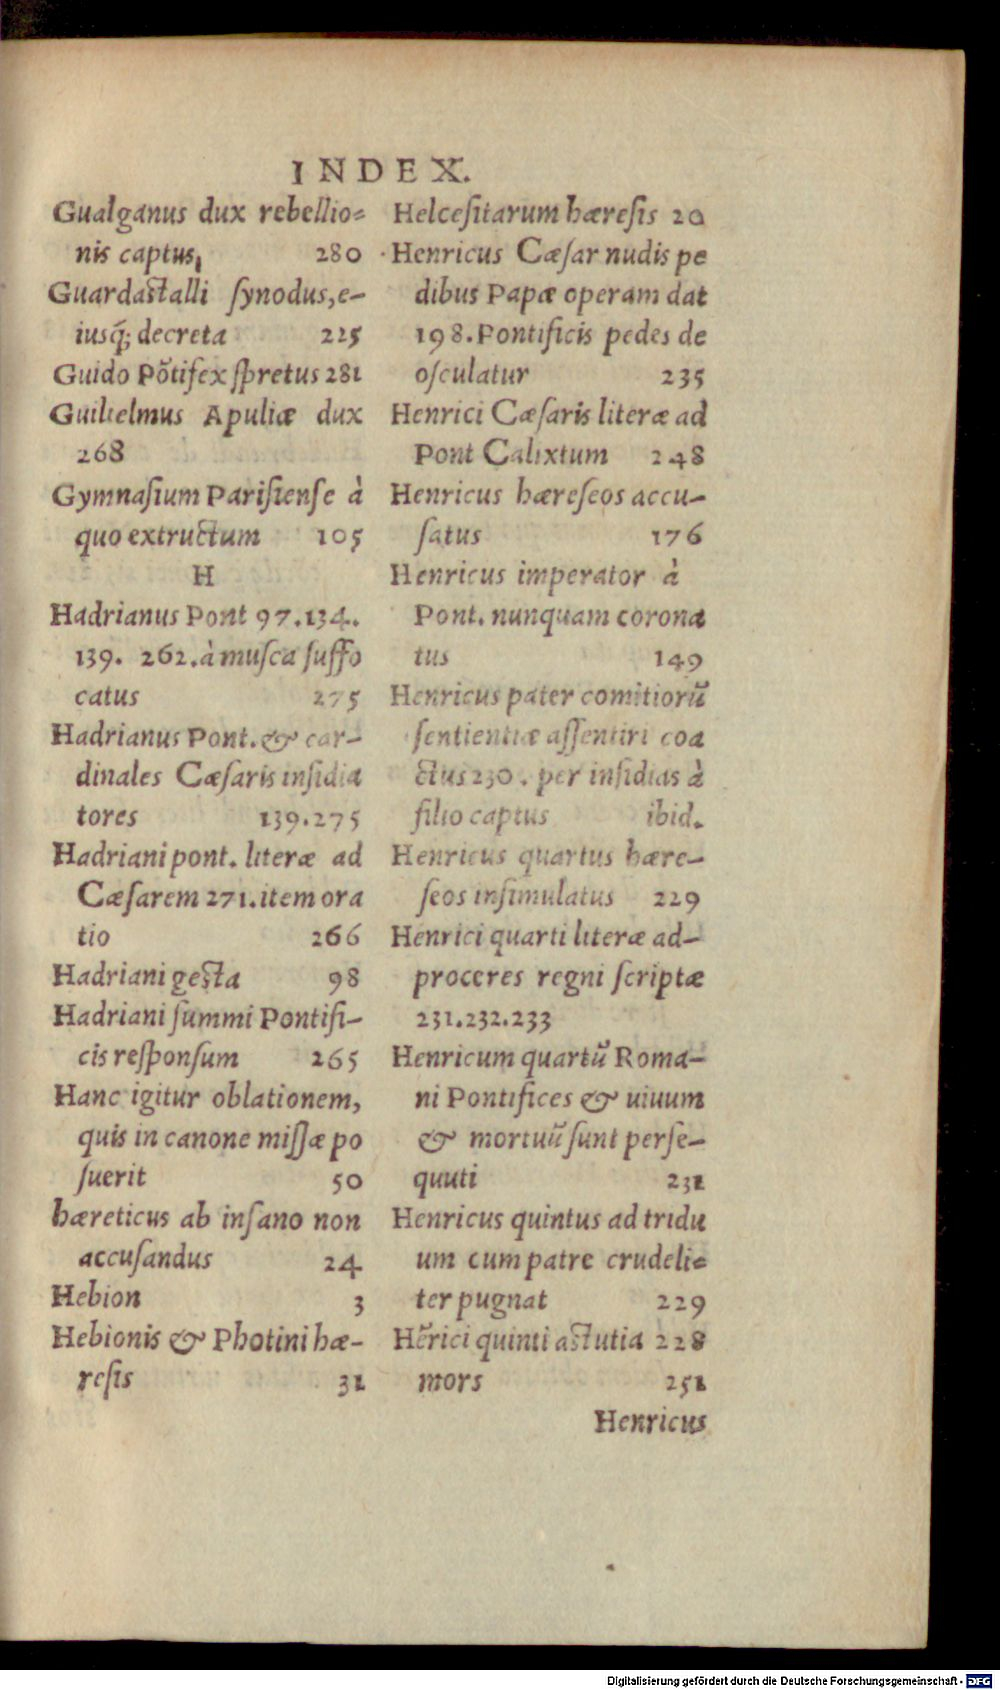 INDEX.
Gualganus dux rebellio=
nis captus, 280
Guardastalli synodus, e-
iusq́; decreta 225
Guido Põtifex spretus 281
Guilielmus Apuliæ dux
268
Gymnasium Parisiense à
quo extructum 105
H
Hadrianus Pont 97.134.
139. 262. à musca suffo
catus 275
Hadrianus Pont. & car-
dinales Cæsaris insidia
tores 139.275
Hadriani pont. literæ ad
Cæsarem 271. item ora
tio 266
Hadriani gesta 98
Hadriani summi Pontifi-
cis responsum 265
Hanc igitur oblationem,
quis in canone missæ po
suerit 50
hæreticus ab insano non
accusandus 24
Hebion 3
Hebionis & Photini hæ-
resis 31
Helcesitarum hæresis 20
Henricus Cæsar nudis pe
dibus Papæ operam dat
198. Pontificis pedes de
osculatur 235
Henrici Cæsaris literæ ad
Pont Calixtum 248
Henricus hæreseos accu-
satus 176
Henricus imperator à
Pont. nunquam corona
tus 149
Henricus pater comitiorũ
sentientiæ assentiri coa
ctus 230. per insidias à
filio captus ibid.
Henricus quartus hære-
seos insimulatus 229
Henrici quarti literæ ad-
proceres regni scriptæ
231.232.233
Henricum quartũ Roma-
ni Pontifices & uiuum
& mortuũ sunt perse-
quuti 231
Henricus quintus ad tridu
um cum patre crudeli=
ter pugnat 229
Hẽrici quinti astutia 228
mors 251
Henricus
Digitalisierung gefördert durch die Deutsche Forschungsgemeinschaft - DFG